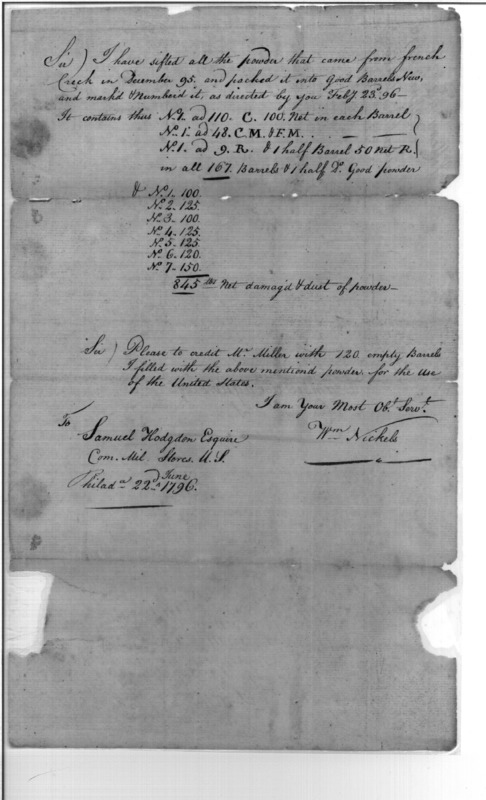 Sir) I have sifted all the powder that came from french
Creek in December 95. and packed it into Good Barrels New,
and markd & Numberd it, as directed by you Feby. 23d. 96
It contains thus No. 1. ad 110. C. 100. Net in each Barrel
No. 1. ad 48. C.M. & F.M. . . —
No. 1. ad 9. R. & 1 half Barrel 50 Net R.
in all 167. Barrels & 1 half Do. Good powder
& No. 1. 100.
No. 2. 125.
No. 3. 100.
No. 4. 125.
No. 5. 125.
No. 6. 120.
No. 7. 150.
845 lbs Net damag'd & dust of powder —
Sir) Please to credit Mr. Miller with 120 empty Barrels
I filled with the above mentiond powder for the use
of the United States.
I am Your Most Obt. Servt.
Wm Nickels
To
Samuel Hodgdon Esquire
Com. Mil. Stores. U.S.
Philada. 22d. June 1796.